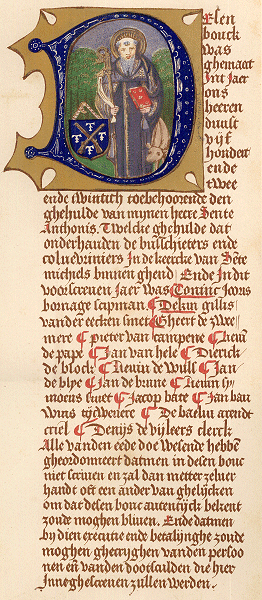 Desen
bouck
was
ghemaat
Int Jaer
ons
heeren
duust
vijf
hondert
ende
twee
ende twintich toebehoorende den
ghehulde van mynen heere Sente
Anthonis. Twelcke ghehulde dat
onderhauden de busschieters ende
colueuriniers In de keercke van Ste
michiels binnen ghend Ende In dit
voorscreuen Jaer was Coninc Joors
bornage scipman Deken gillis
vander eecken smet Gheert de zwe
mere pieter van campene lieuin
de pape Jan van hele Dierick
de block lieuin de wulf Jan
de blye Jan de brune lieuin sy
moens smet Jacop bate Jan bau
wins tycweuere De baeliu arendt
criel Denijs de vyleers clerck
Alle vanden eede doe wesende hebben
gheordonneert datmen in desen bouc
niet scriuen en zal dan metter zeluer
handt oft een ander van ghelijcken
om dat desen bouc autentijck bekent
zoude moghen bliuen. Ende datmen
by dien executie ende betalinghe zoude
moghen ghecryghen vanden persoo
nen en vanden dootsculden die hier
Inne ghescreuen zullen werden.